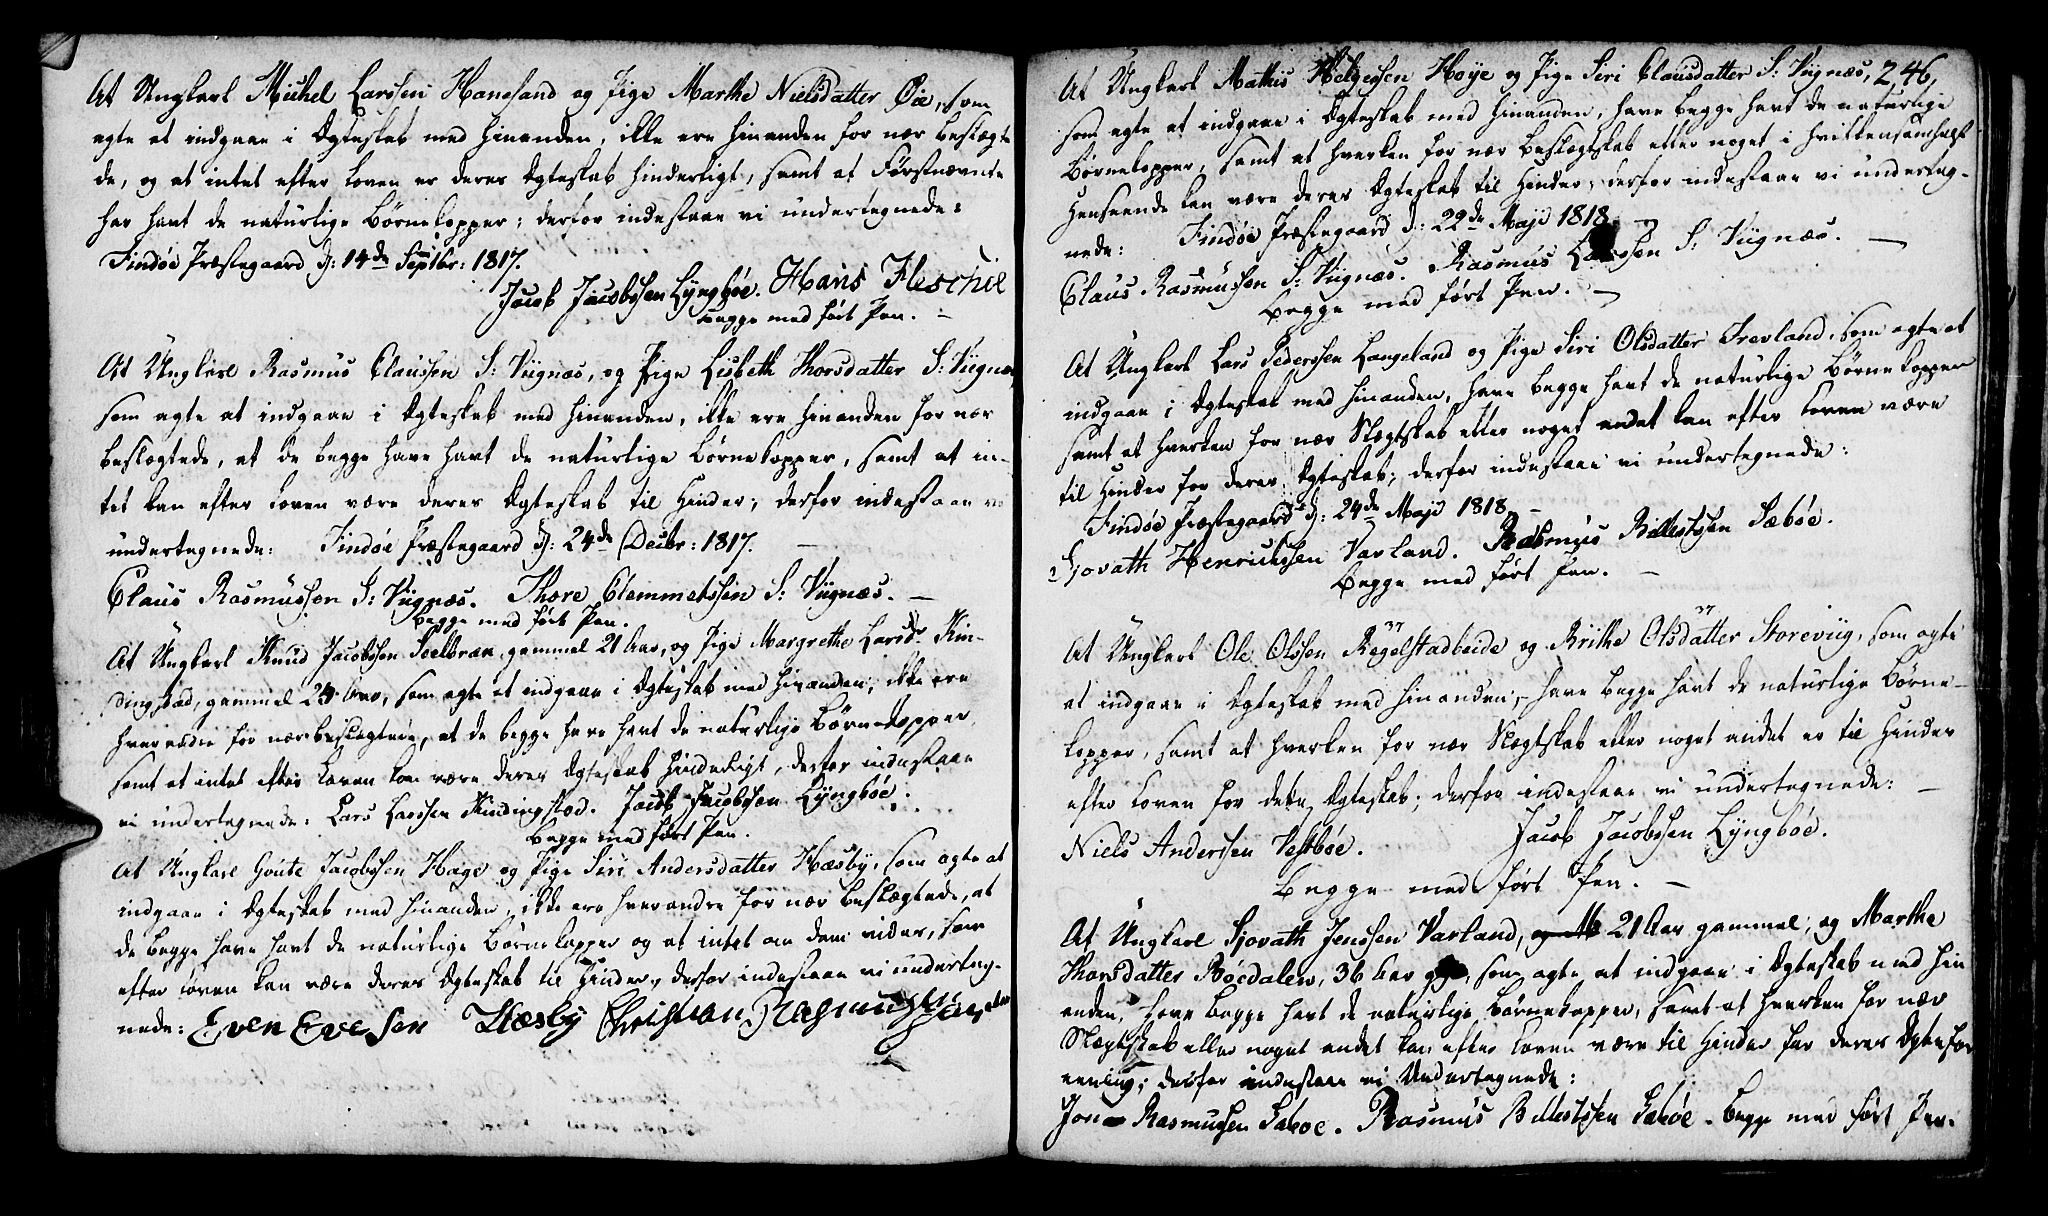 At Ungkarl Michel Larssen Hanesand og Pige Marthe Nielsdatter Øie, som
agte at indgaae i Ægteskab med hinanden, ikke ere hinanden for nær beslægte
de, og at intet efter Loven er deres Ægteskab hinderligt, samt at Førstnævnte
har havt de naturlige Børnekopper; derfor indestaae vi undertegnede:
Findøe Præstegaard d: 14de Septbr: 1817.
Jacob Jacobssen Lyngbøe. Hans Fleschie
Begge med ført Pen.
At Ungkarl Rasmus Claussen S: Viignæs, og Pige Lisbeth Thorsdatter S: Viignæs
som agte at indgaae i Ægteskab med hinanden, ikke ere hinanden for nær
beslægtede, at de begge have havt de naturlige Børnekopper, samt at in-
tet kan efter Loven være deres Ægteskab til Hinder; derfor indestaae vi
undertegnede: Findøe Præstegaard d: 24de Decbr: 1817.
Claus Rasmussen S: Viignæs. Thore Clemmetssen S: Viignæs.
Begge med ført Pen.
At Ungkarl Knud Jacobssen gammel 21 Aar, og Pige Margrethe Larsd: Kin-
dingstad, gammel 24 Aar, som agte at indgaae i Ægteskab med hinanden, ikke ere
hverandre for nær beslægtede, at de begge have havt de naturlige Børnekopper,
samt at intet efter Loven kan være deres Ægteskab hinderligt, derfor indestaae
vi undertegnede: Lars Larssen Kindingstad. Jacob Jacobssen Lyngbøe.
Begge med ført Pen.
At Ungkarl Goute Jacobssen Hage og Pige Siri Andersdatter Hæsby, som agte at
indgaae i Ægteskab med hinanden, ikke ere hverandre for nær beslægtede, at
de begge have havt de naturlige Børnekopper og at intet om dem vides, som
efter Loven kan være deres Ægteskab til Hinder, derfor indestaae vi underteg-
nede: Even Evensen Hæsby Christian Rasmussen
At Ungkarl Mathis Helgessen Høye og Pige Siri Clausdatter S: Viignæs, 246,
som agte at indgaae i Ægteskab med hinanden, have begge havt de naturlige
Børnekopper, samt at hverken for nær Beslægtskab eller noget i hvilkensomhelst
Henseende kan være deres Ægteskab til Hinder, derfor indestaae vi underteg-
nede: Findøe Præstegaard d: 22de Maji 1818.
Claus Rasmussen S: Viignæs. Rasmus Larssen S: Viignæs.
Begge med ført Pen.
At Ungkarl Lars Pederssen Langeland og Pige Siri Olsdatter Trevland, som agte at
indgaae i Ægteskab med hinanden, have begge havt de naturlige Børnekopper
samt at hverken for nær Slægtskab eller noget andet kan efter Loven være
til Hinder for deres Ægteskab; derfor indestaae vi undertegnede:
Findøe Præstegaard d: 24de Maji 1818.
Sjovath Henrichssen Varland. Rasmus Billestssen Sæbøe.
Begge med ført Pen.
37 37
At Ungkarl Ole Olssen Regelstadbeide og Brithe Olsdatter Storeviig, som agte
at indgaae i Ægteskab med hinanden, have begge havt de naturlige Børne-
kopper, samt at hverken for nær Slægtskab eller noget andet er til Hinder
efter Loven for dette Ægteskab; derfor indestaae vi undertegnede:
Niels Anderssen Vestbøe. Jacob Jacobssen Lyngbøe.
Begge med ført Pen.
At Ungkarl Sjovath Jenssen Varland, 21 Aar gammel, og Marthe
Thorsdatter Bøedalen, 36 Aar som agte at indgaae i Ægteskab med hin
anden, have begge havt de naturlige Børnekopper, samt at hverken for nær
Slægtskab eller noget andet kan efter Loven være til Hinder for deres Ægtefor
eening; derfor indestaae vi Undertegnede:
Jon Rasmussen Sæbøe. Rasmus Billestssen Sæbøe. Begge med ført Pen.